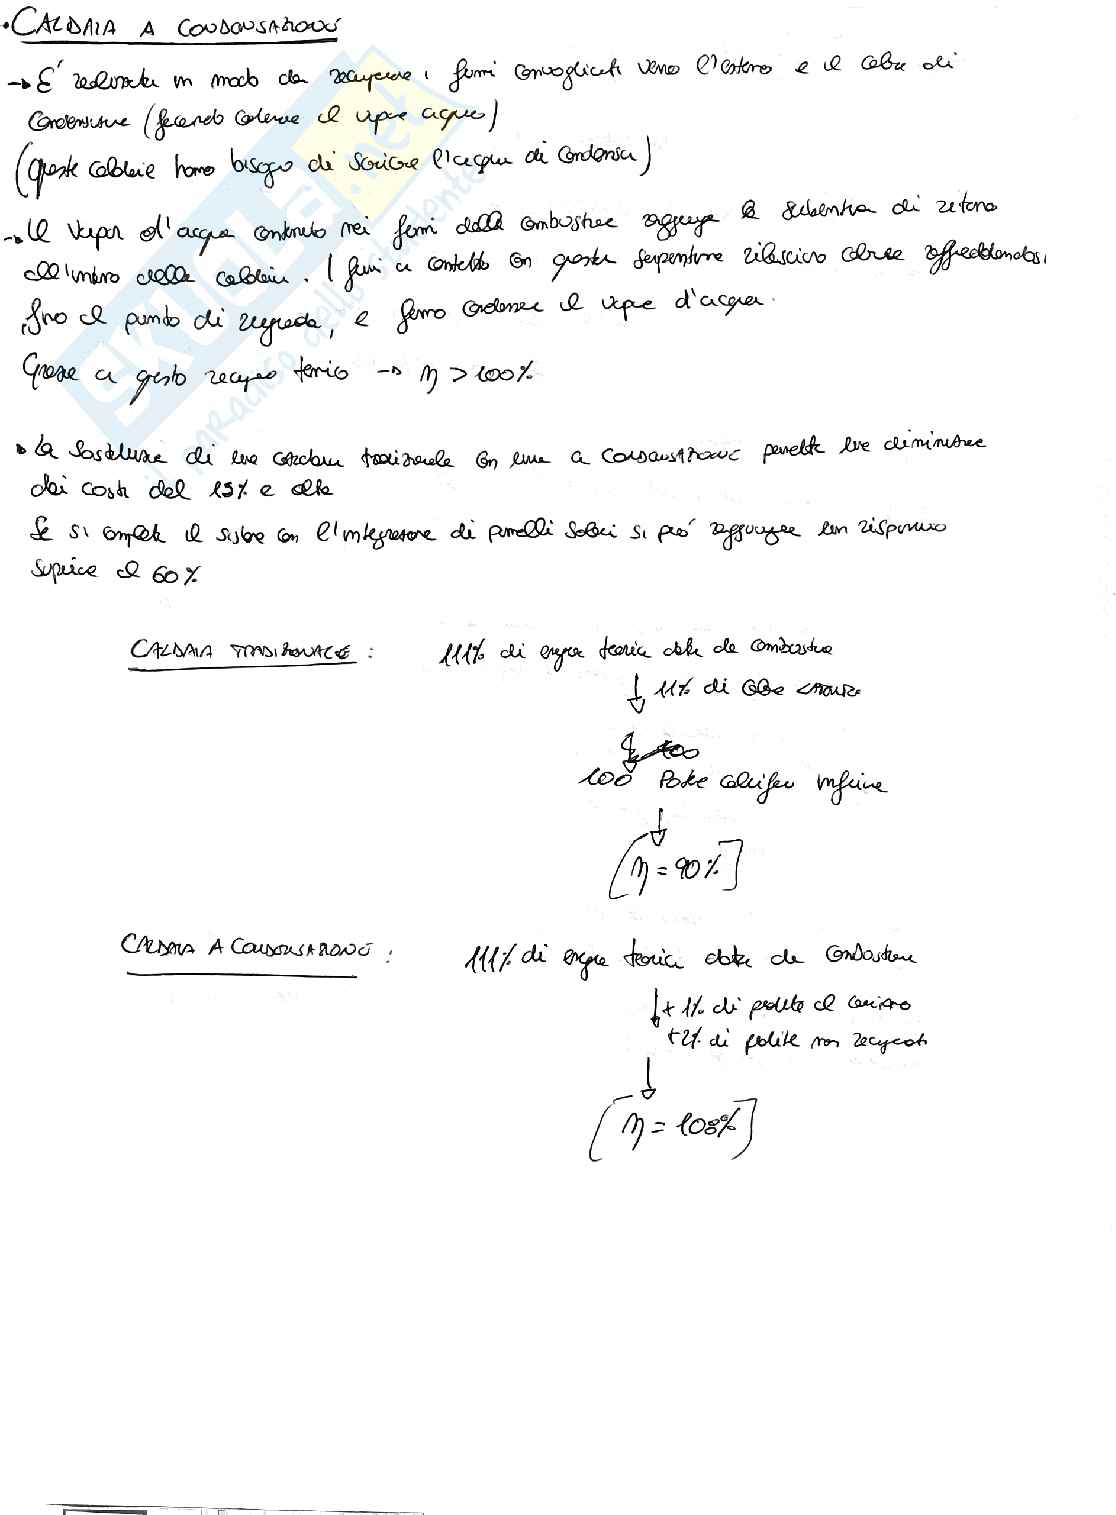 • CALDAIA A CONDENSAZIONE
→ E' realizzata in modo da recuperare i fumi convogliati verso l'esterno e il calore di
condensazione (facendo condensare il vapore acqueo)
(Queste caldaie hanno bisogno di scaricare l'acqua di condensa)
→ Il vapor d'acqua contenuto nei fumi della combustione raggiunge la serpentina di ritorno
all'interno della caldaia. I fumi a contatto con questa serpentina rilasciano calore raffreddandosi
fino al punto di rugiada, e fanno condensare il vapore d'acqua.
Grazie a questo recupero termico → η > 100%
• La sostituzione di una caldaia tradizionale con una a CONDENSAZIONE permette una diminuzione
dei costi del 15% e oltre
Se si completa il sistema con l'integrazione di pannelli solari si può raggiungere un risparmio
superiore al 60%
CALDAIA TRADIZIONALE : 111% di energia teorica data da combustione
↓ 11% di calore LATENTE
100 Potere calorifero inferiore
↓
[η = 90%]
CALDAIA A CONDENSAZIONE : 111% di energia teorica data da combustione
↓ + 1% di perdite al camino
+2% di perdite non recuperate
↓
[η = 108%]
SKUOLA.net
il paradiso dello studente